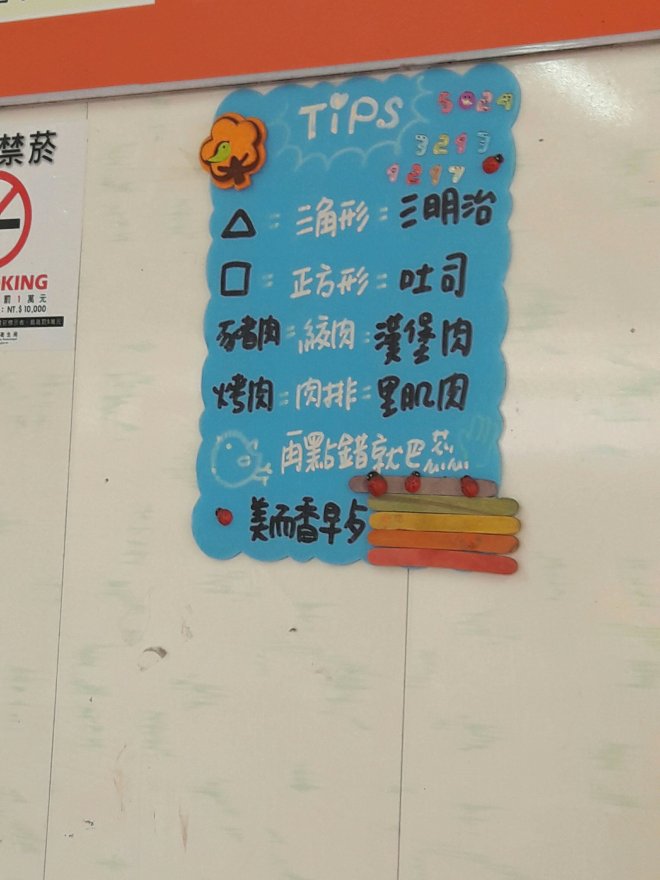 禁菸
KING
罰1萬元
: NT.$10,000
TiPS
3293
△ = 三角形 = 三明治
□ = 正方形 = 吐司
豬肉 = 絞肉 = 漢堡肉
烤肉 = 肉排 = 里肌肉
再點錯就巴蕊
美而香早点